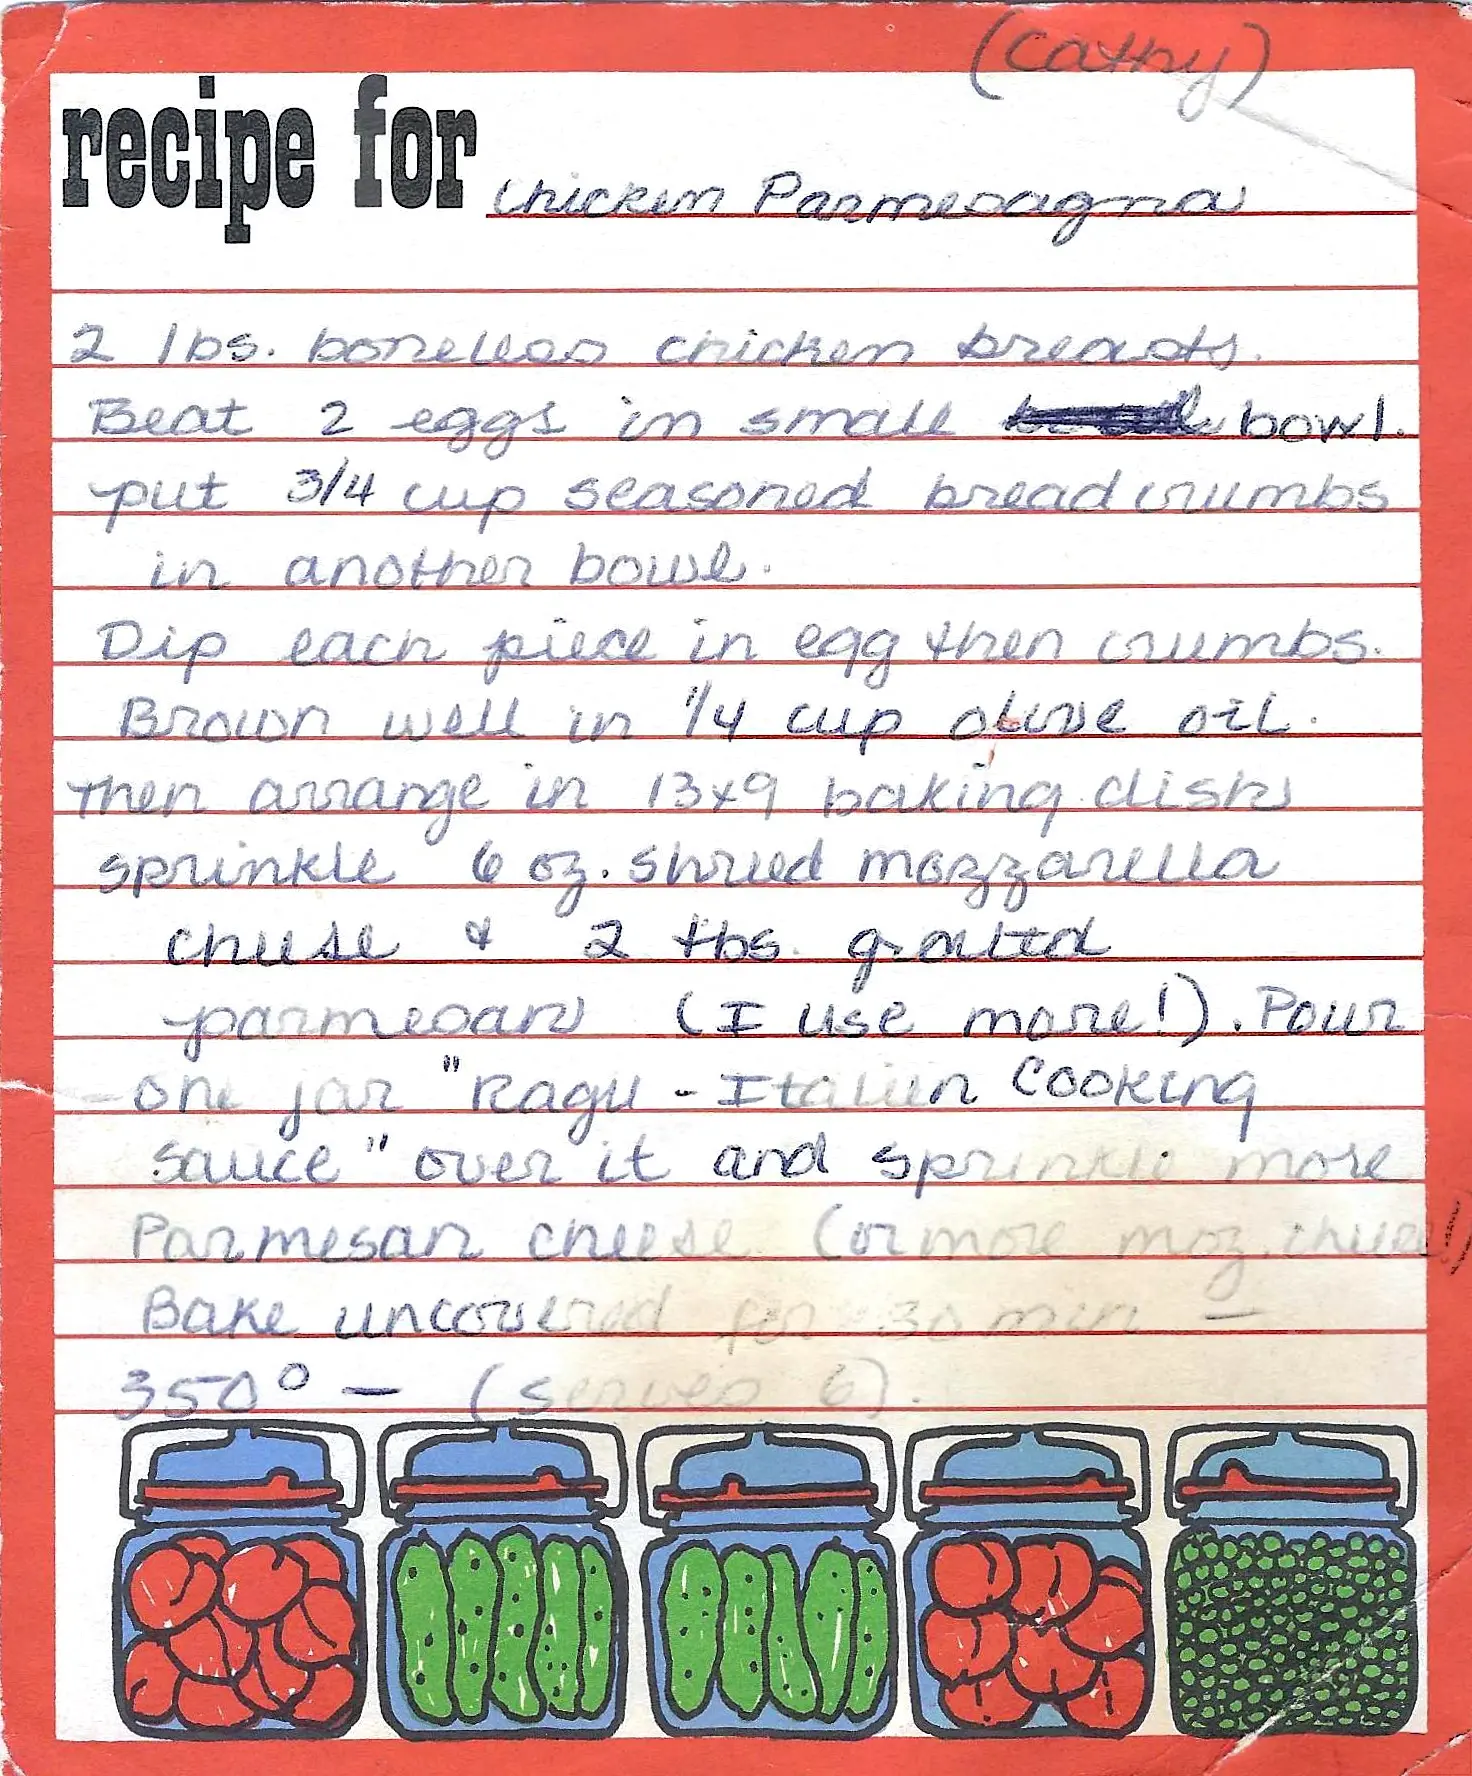 (Cathy)
recipe for Chicken Parmesagna
2 lbs. boneless chicken breasts.
Beat 2 eggs in small bowl.
put 3/4 cup seasoned bread crumbs
in another bowl.
Dip each piece in egg then crumbs.
Brown well in 1/4 cup olive oil.
Then arrange in 13x9 baking dish
sprinkle 6 oz. shred mozzarella
cheese & 2 tbs. grated
parmesan (I use more!). Pour
one jar "Ragu - Italien Cooking
Sauce" over it and sprinkle more
Parmesan cheese (or more moz. cheese)
Bake uncovered for 30 min —
350° — (serves 6).